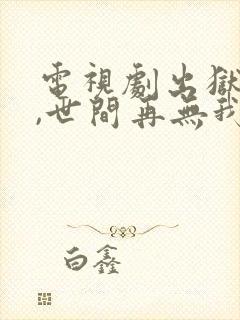 電視劇出獄
,世間再無我
白鑫